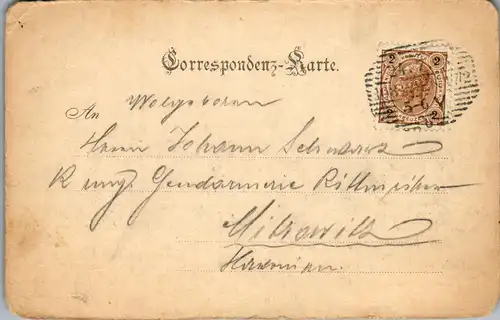 Correspondenz-Karte.
2 2
An Wolgeboren
Herrn Johann Schwarz
K. ung. Gendarmerie Rittmeister
Mitrowitz
2